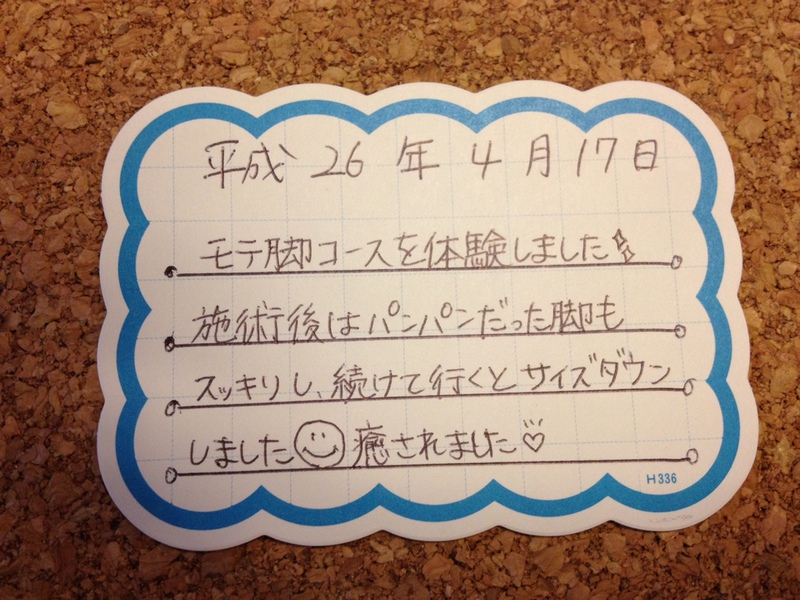 平成 26 年 4 月 17 日
モテ脚コースを体験しました
施術後はパンパンだった脚も
スッキリし、続けて行くとサイズダウン
しました 癒されました♡
H336